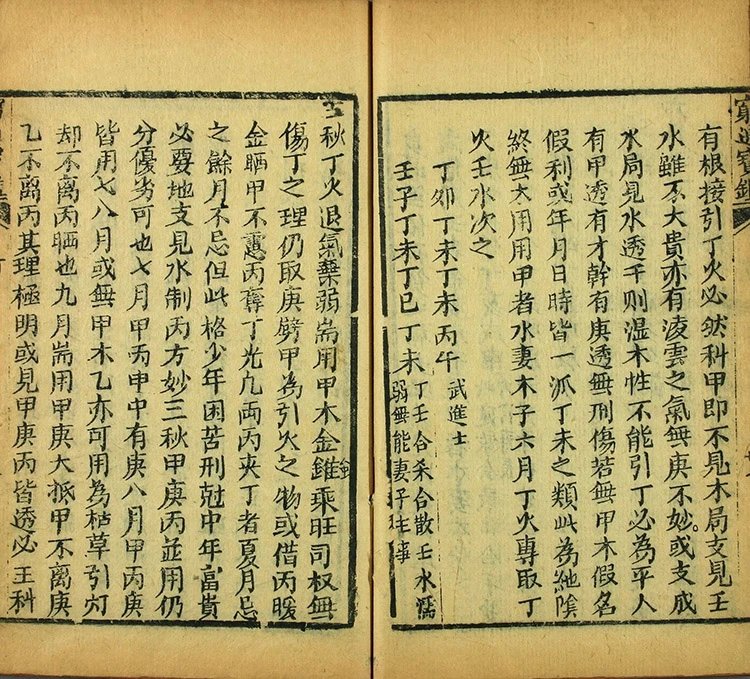 有根接引丁火必然科甲即不見木局支見壬
水雖不大貴亦有凌雲之氣無庚不妙或支成
水局見水透干則湿木性不能引丁必為平人
有甲透有才幹有庚透無刑傷若無甲木假名
假利或年月日時皆一派丁未之類此為純陰
終無大用用甲者水妻木子六月丁火專取丁
火壬水次之
丁卯丁未丁未丙午 武進士
壬子丁未丁巳丁未 丁壬合采合散壬水濡
弱無能妻子主事
三秋丁火退氣藥弱耑用甲木金雖乘旺司权無
傷丁之理仍取庚劈甲為引火之物或借丙暖
金晒甲不慮丙奪丁光凣両丙夹丁者夏月忌
之餘月不忌但此格少年困苦刑尅中年富貴
必要地支見水制丙方妙三秋甲庚丙並用仍
分優劣可也七月甲丙申中有庚八月甲丙庚
皆用七八月或無甲木乙亦可用為枯草引灯
却不离丙晒也九月耑用甲庚大抵甲不离庚
乙不离丙其理極明或見甲庚丙皆透必 王科